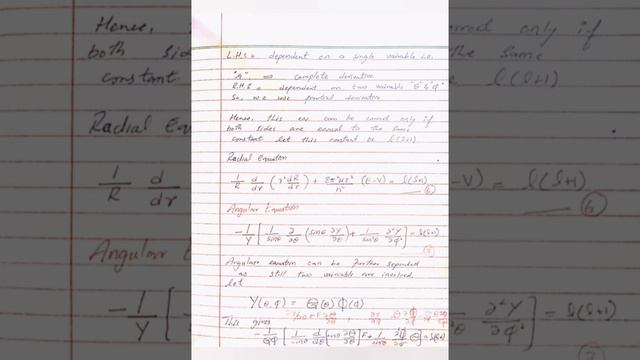 L.H.S = dependent on a single variable i.e.
"r" ⟹ complete derivative
R.H.S = dependent on two variable "θ" & "Φ"
So, we use partial derivative
Hence, this eq. can be only if
both sides are equal to the same
constant let this constant be l(l+1)
Radial Equation
1/R d/dr (r² dR/dr) + 8π²μr²/h² (E-V) = l(l+1)
6
Angular Equation
-1/Y [1/sinθ ∂/∂θ (sinθ ∂Y/∂θ) + 1/sin²θ ∂²Y/∂Φ²] = l(l+1)
7
Angular equation can be further
as still two variable are involved.
let
Y(θ,Φ) = Θ(θ) Φ(Φ)
This gives